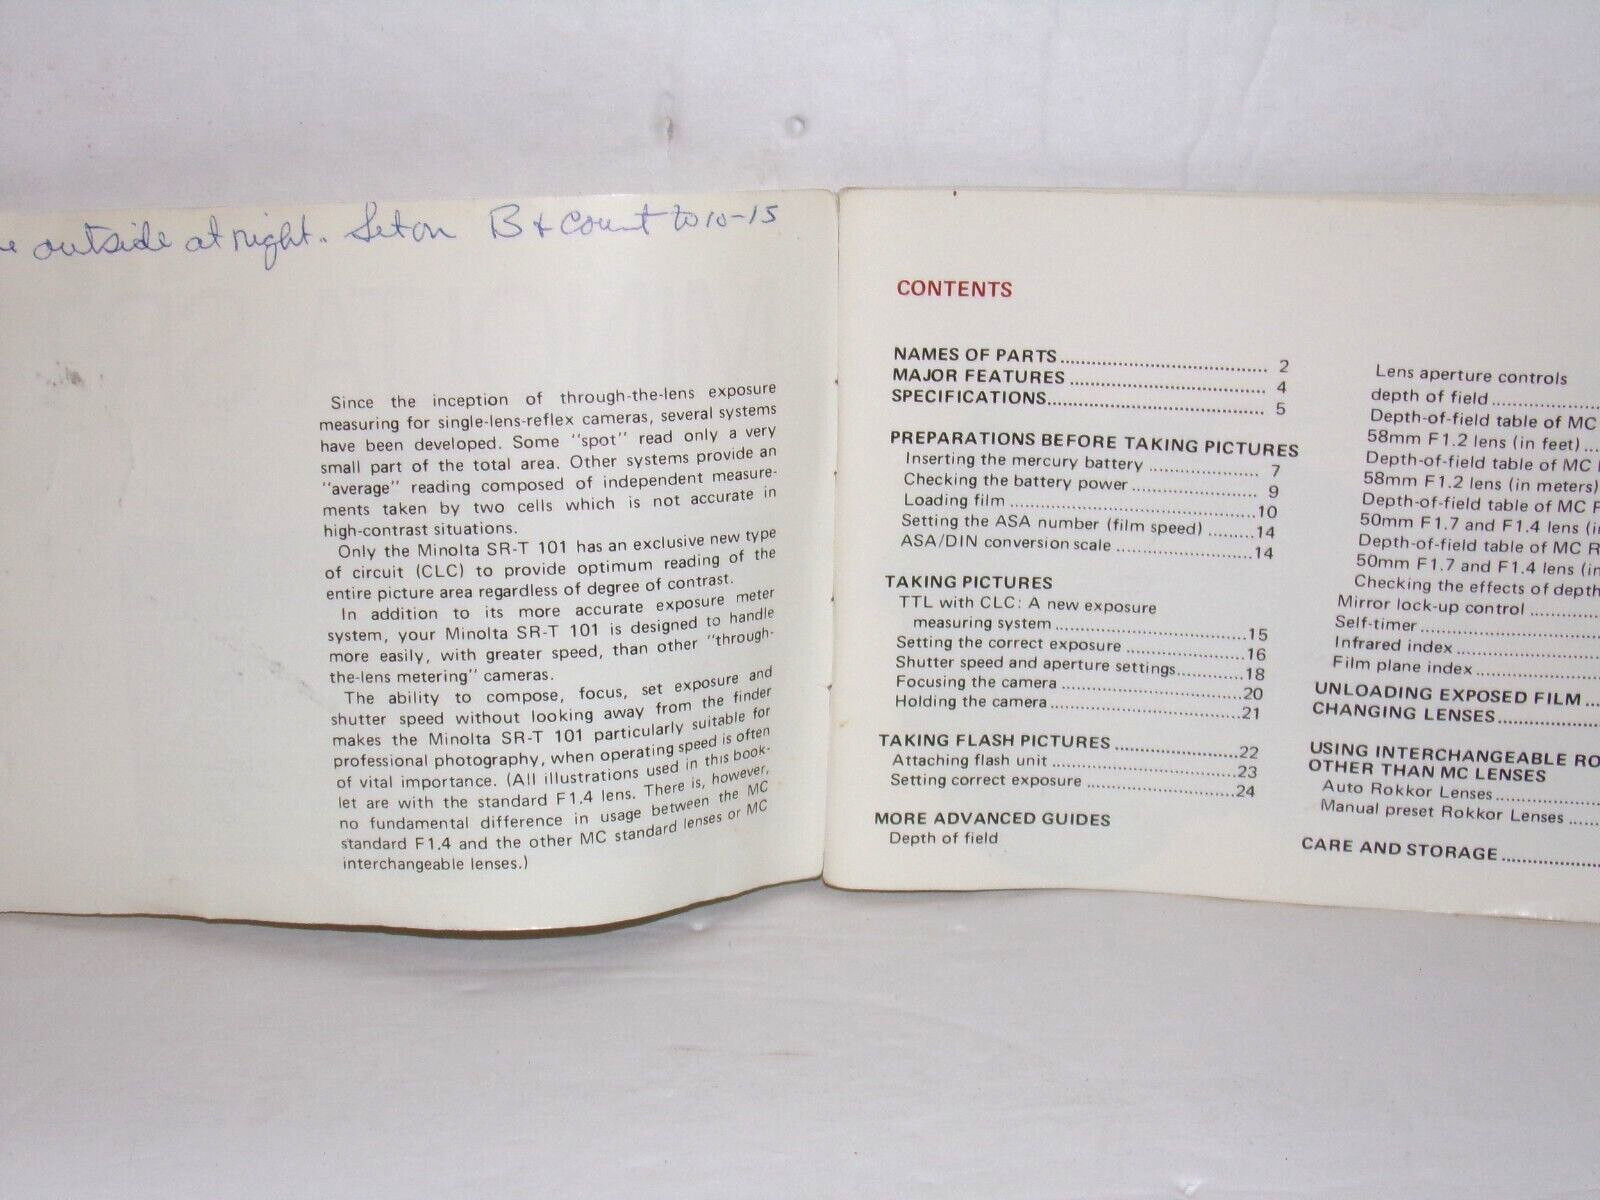 outside at right. Set on B & Count to 10-15
Since the inception of through-the-lens exposure
measuring for single-lens-reflex cameras, several systems
have been developed. Some "spot" read only a very
small part of the total area. Other systems provide an
"average" reading composed of independent measure-
ments taken by two cells which is not accurate in
high-contrast situations.
Only the Minolta SR-T 101 has an exclusive new type
of circuit (CLC) to provide optimum reading of the
entire picture area regardless of degree of contrast.
In addition to its more accurate exposure meter
system, your Minolta SR-T 101 is designed to handle
more easily, with greater speed, than other "through-
the-lens metering" cameras.
The ability to compose, focus, set exposure and
shutter speed without looking away from the finder
makes the Minolta SR-T 101 particularly suitable for
professional photography, when operating speed is often
of vital importance. (All illustrations used in this book-
let are with the standard F1.4 lens. There is, however,
no fundamental difference in usage between the MC
standard F1.4 and the other MC standard lenses or MC
interchangeable lenses.)
CONTENTS
NAMES OF PARTS ........ 2
MAJOR FEATURES ........ 4
SPECIFICATIONS........ 5
PREPARATIONS BEFORE TAKING PICTURES
Inserting the mercury battery ........ 7
Checking the battery power ........ 9
Loading film ........ 10
Setting the ASA number (film speed) ........ 14
ASA/DIN conversion scale ........ 14
TAKING PICTURES
TTL with CLC: A new exposure
measuring system ........ 15
Setting the correct exposure ........ 16
Shutter speed and aperture settings........ 18
Focusing the camera ........ 20
Holding the camera ........ 21
TAKING FLASH PICTURES ........ 22
Attaching flash unit ........ 23
Setting correct exposure ........ 24
MORE ADVANCED GUIDES
Depth of field
Lens aperture controls
depth of field ........
Depth-of-field table of MC
58mm F1.2 lens (in feet) ...
Depth-of-field table of MC
58mm F1.2 lens (in meters)
Depth-of-field table of MC
50mm F1.7 and F1.4 lens
Depth-of-field table of MC
50mm F1.7 and F1.4 lens
Checking the effects of depth
Mirror lock-up control ........
Self-timer ........
Infrared index ........
Film plane index ........
UNLOADING EXPOSED FILM ...
CHANGING LENSES ........
USING INTERCHANGEABLE
OTHER THAN MC LENSES
Auto Rokkor Lenses ........
Manual preset Rokkor Lenses .....
CARE AND STORAGE ........